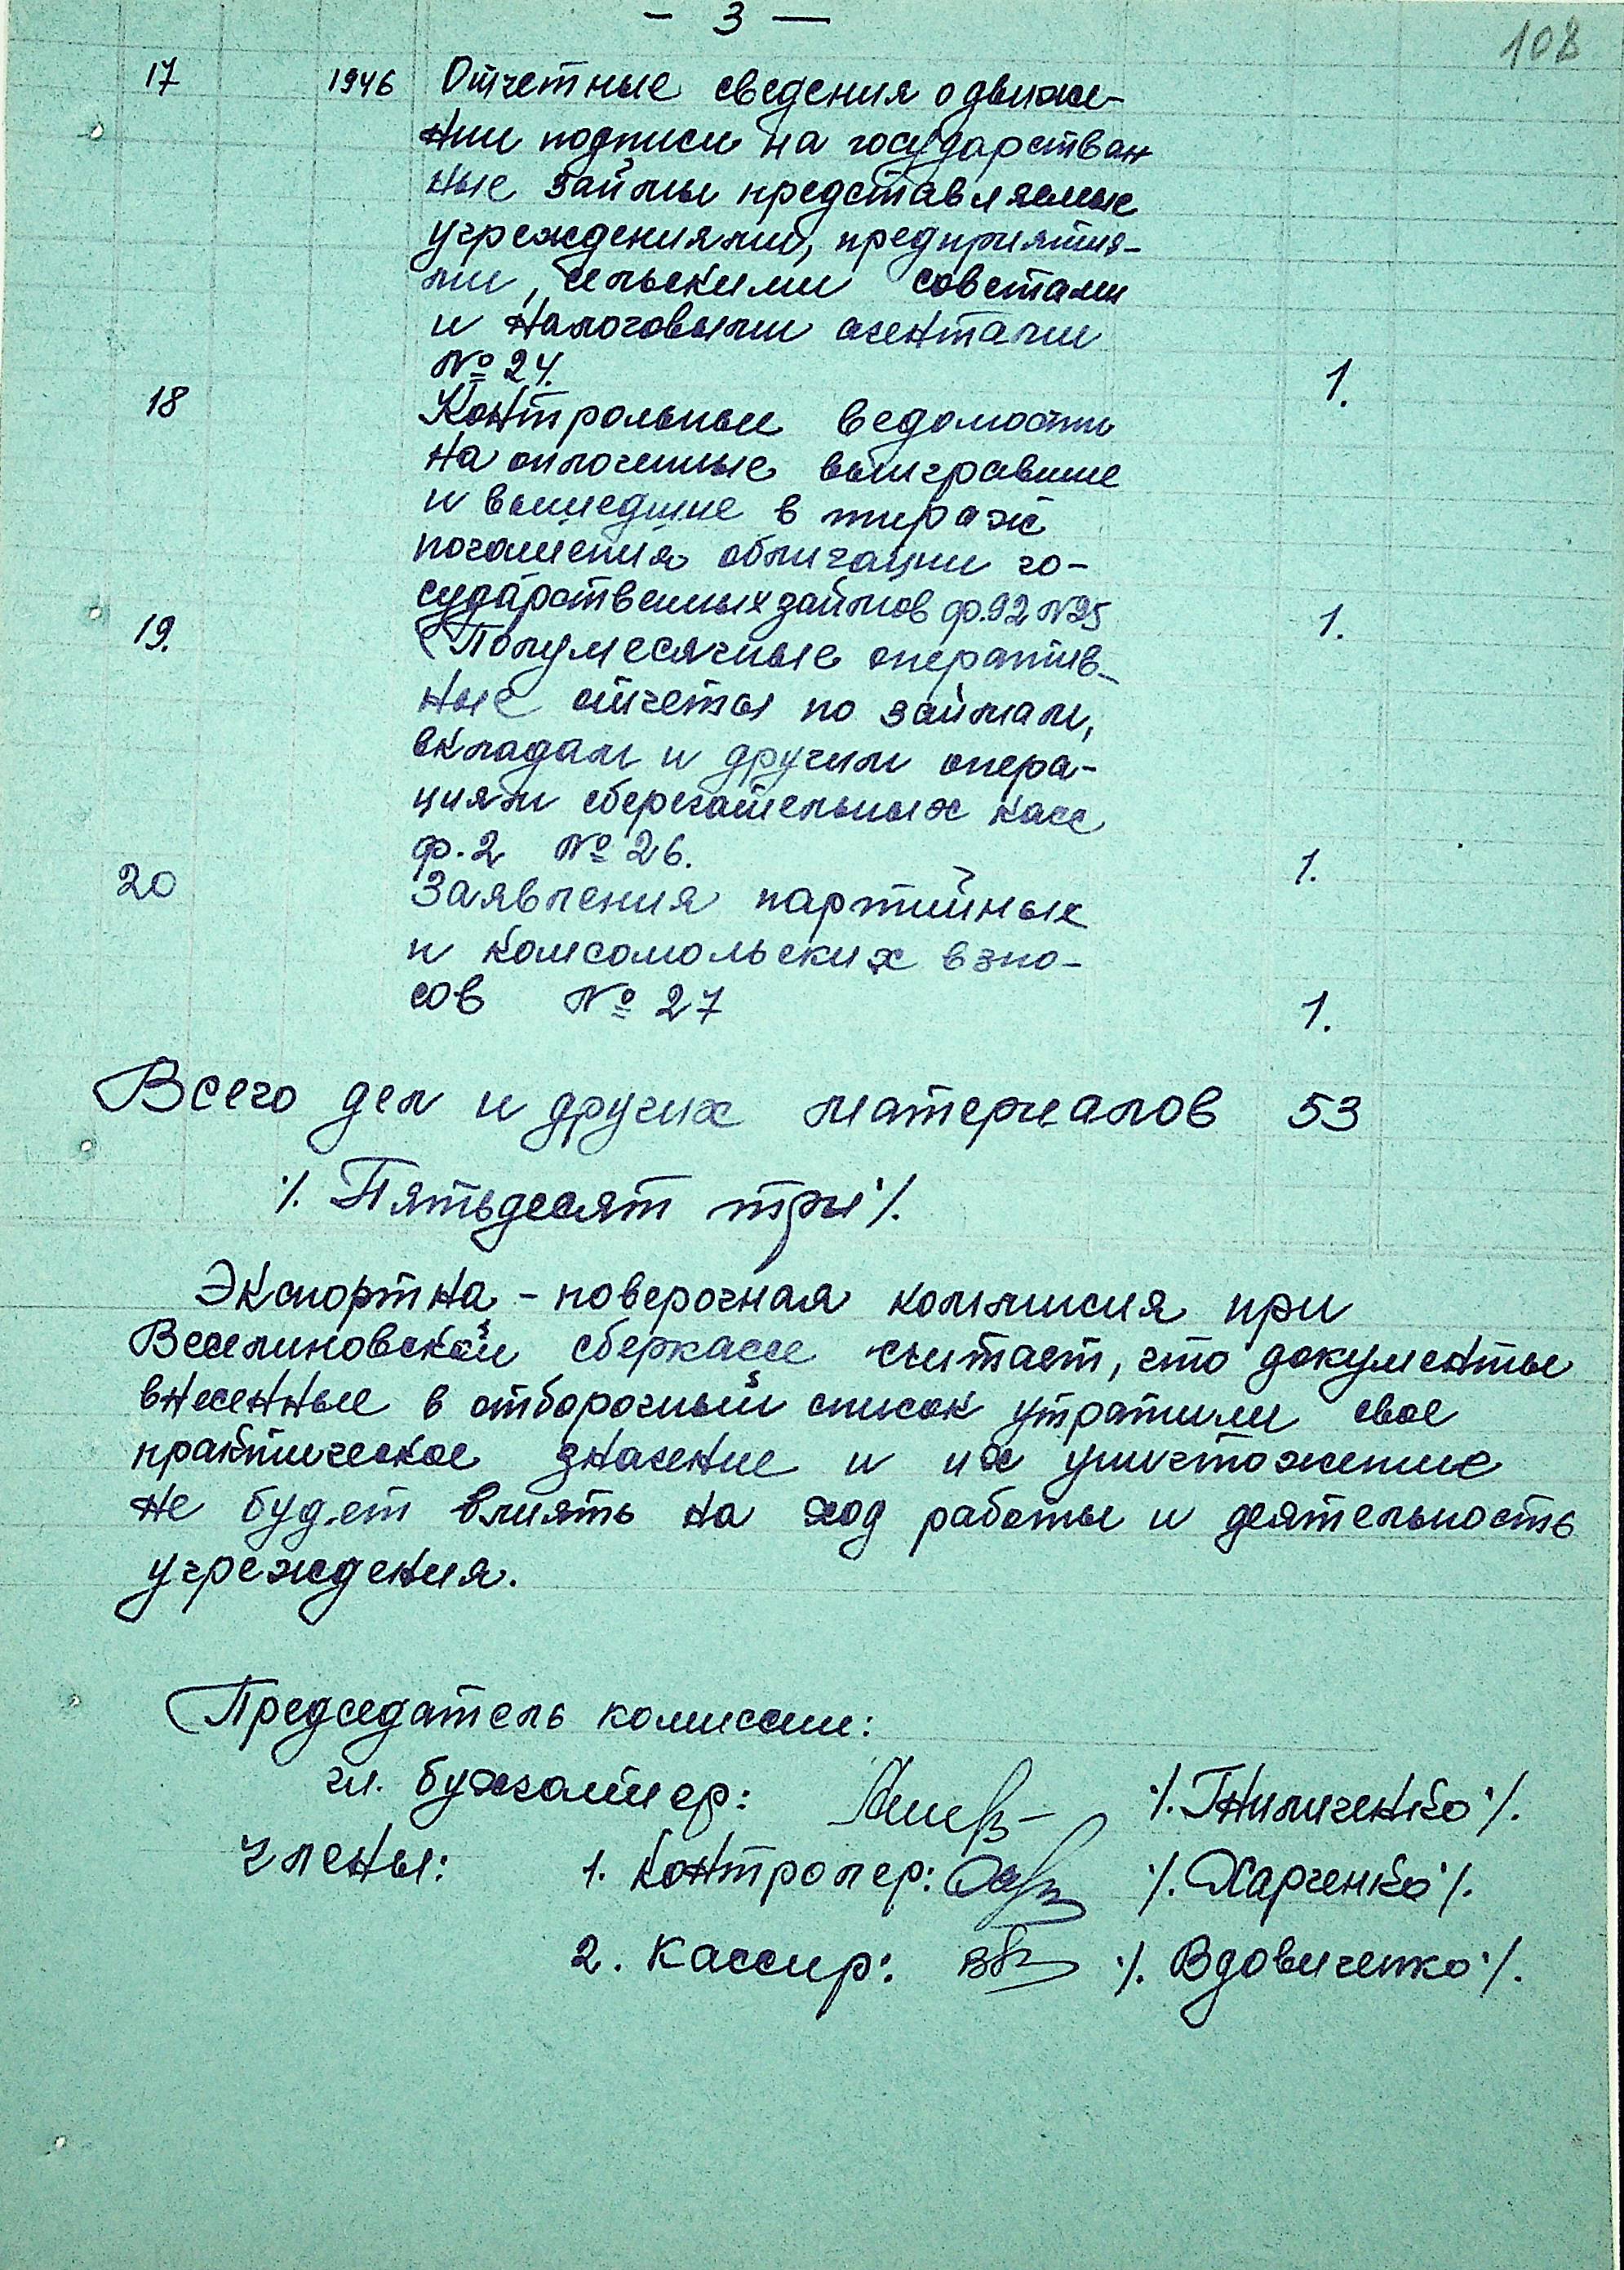 - 3 -
108
17 1946 Отчетные сведения о движе-
нии подписи на государствен
ные займы представляемые
учреждениями, предприятия-
ми, сельскими советами
и налоговыми агентами
№ 24. 1.
18 Контрольные ведомости
на оплоченные выигравшие
и вышедшие в тираж
погашения облигации го-
сударственных займов ф.92 №25 1.
19. Полумесячные оператив-
ные отчеты по займам,
вкладам и другим опера-
циям сберегательных касс
ф.2 № 26. 1.
20 Заявления партийных
и комсомольских взно-
сов № 27 1.
Всего дел и других материалов 53
·/. Пятьдесят три ·/.
Экспортна - поверочная коммисия при
Веселиновской сберкассе считает, что документы
внесенные в отборочный список утратили свое
практическое значение и их уничтожение
не будет влиять на ход работы и деятельность
учреждения.
Председатель комиссии:
гл. бухгалтер: ·/. Гниличенко ·/.
Члены: 1. Контролер: ·/. Харченко ·/.
2. Кассир: ·/. Вдовиченко ·/.